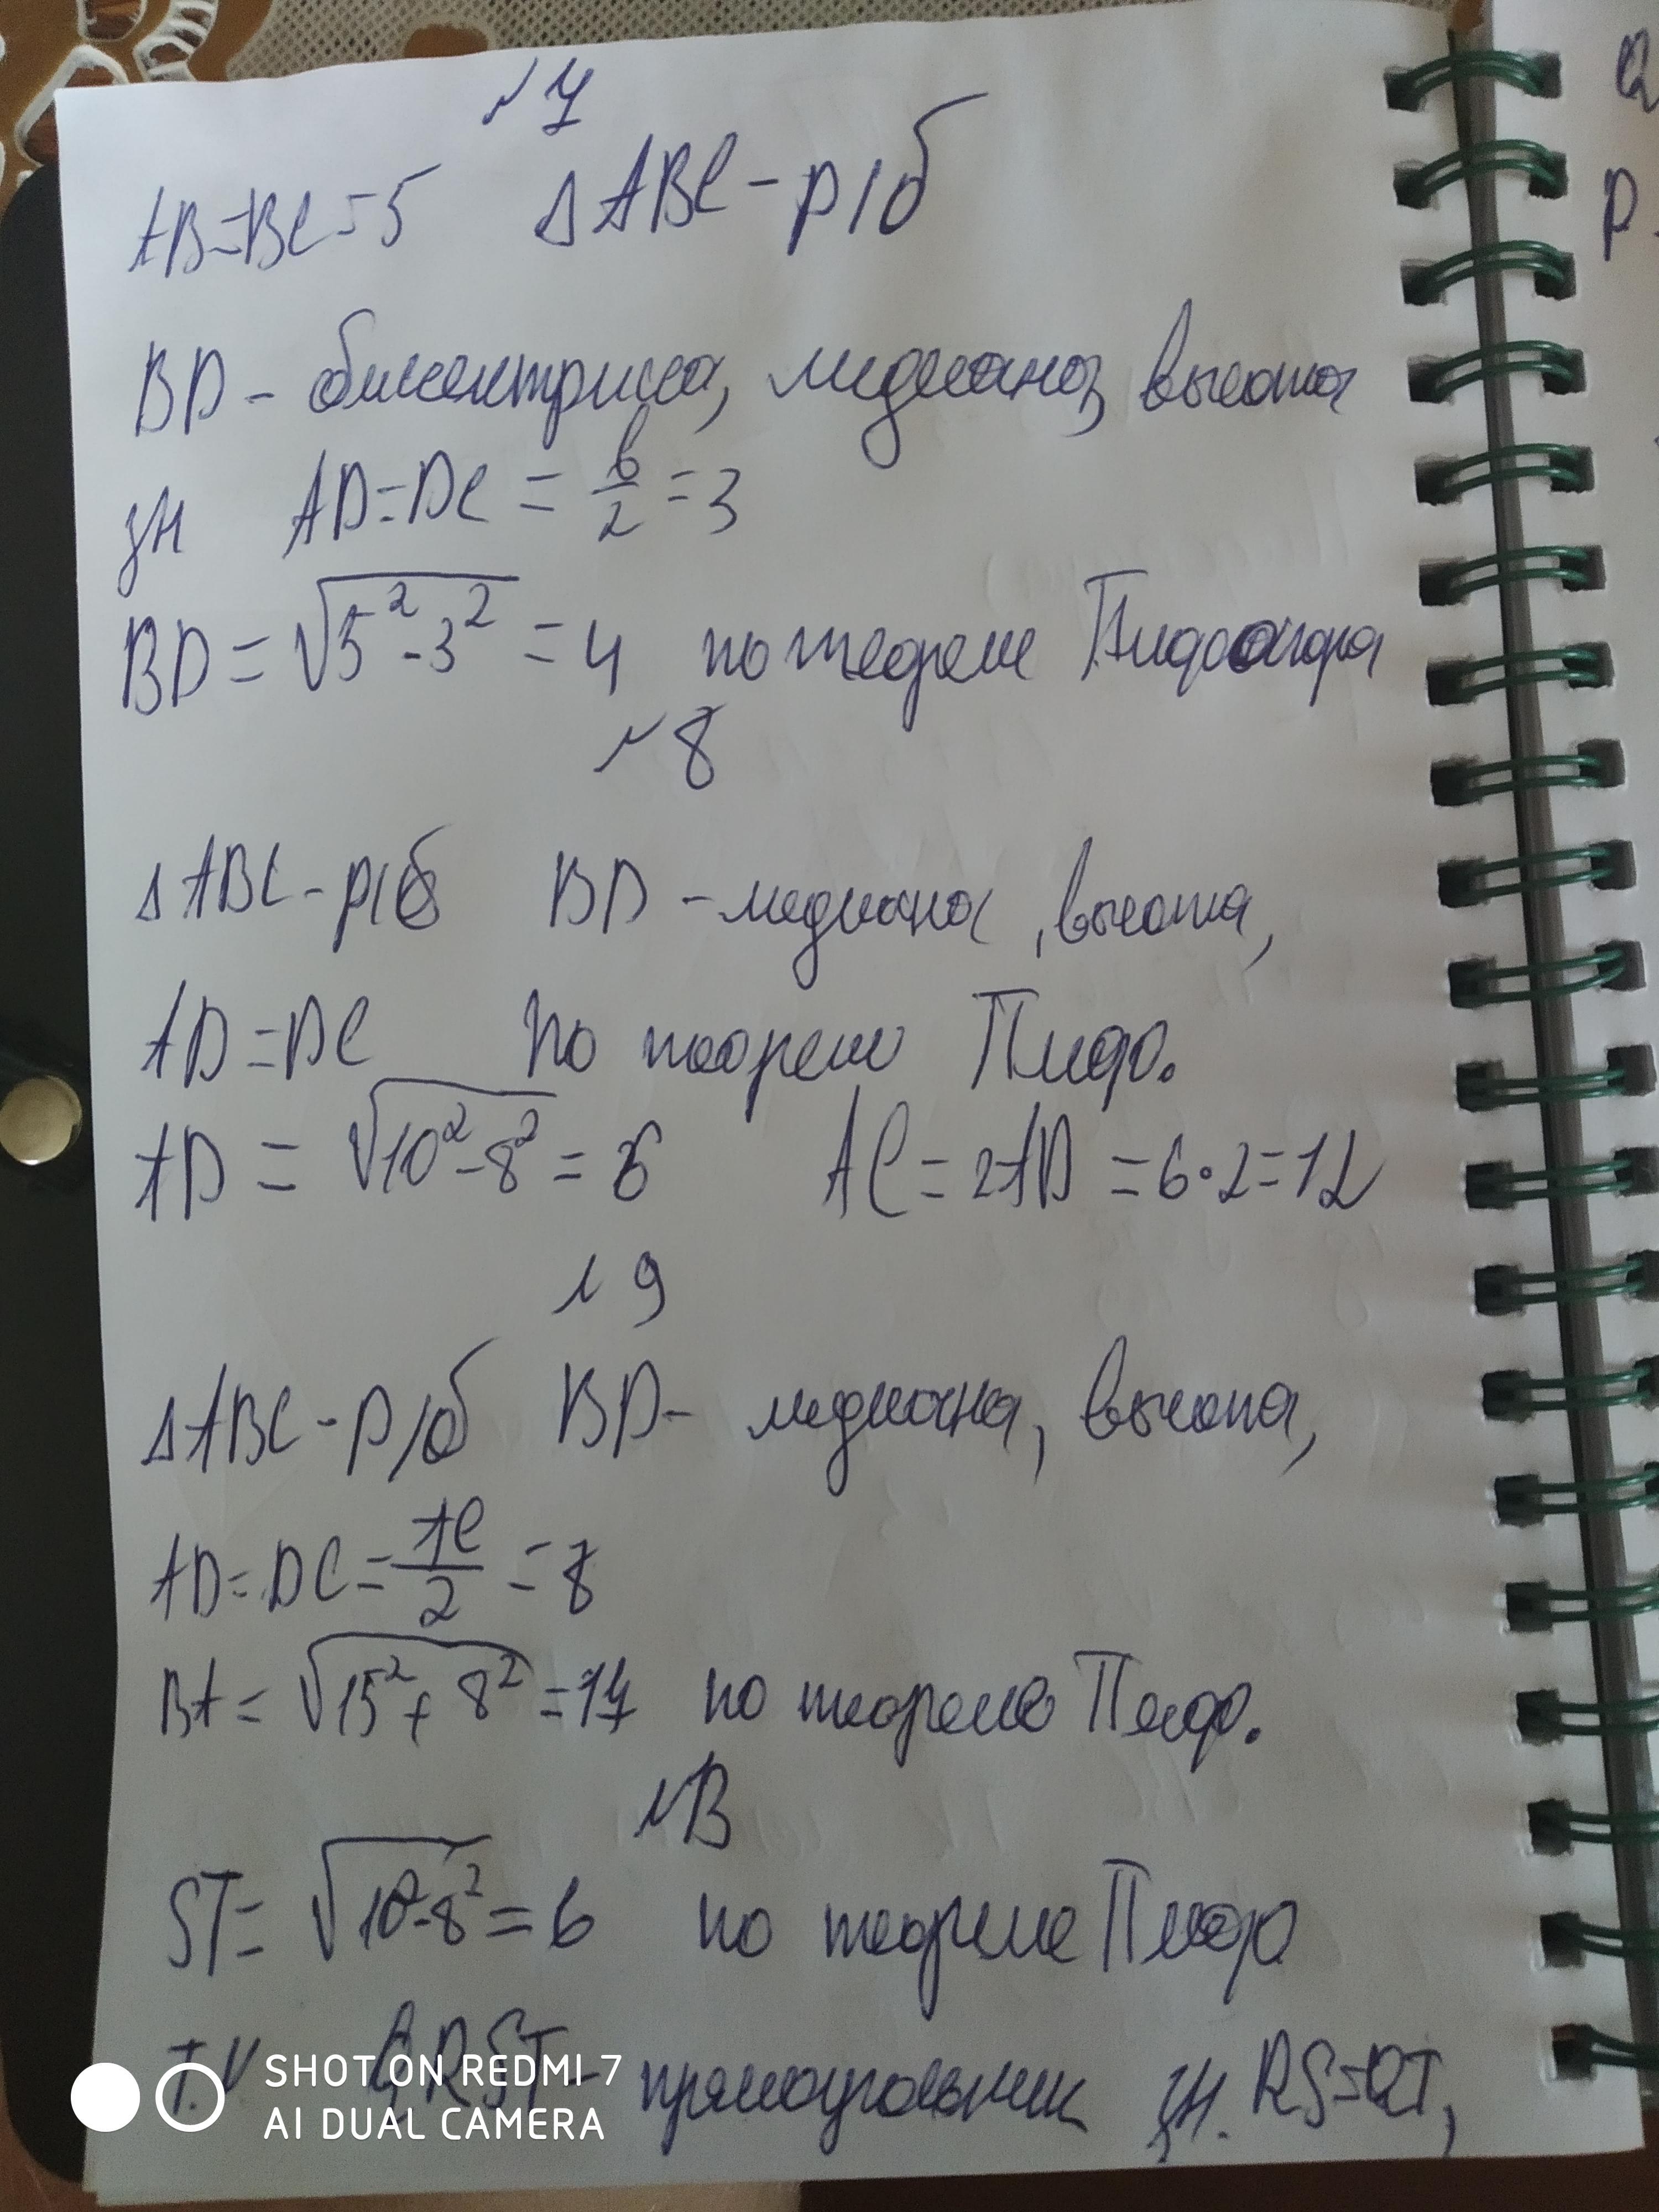 №7
AB=BC=5 ΔABC-р/б
BD- биссектриса, медиана, высота
зн AD=DC = 6/2 = 3
BD = √5²-3² = 4 по теореме Пифагора
№8
ΔABC-р/б BD - медиана, высота,
AD=DC По теореме Пифо.
AD = √10²-8² = 6 AC = 2AD = 6·2=12
№9
ΔABC-р/б BD- медиана, высота,
AD=DC=AC/2 = 8
BA= √15²+8² =17 по теореме Пиф.
№B
ST= √10²-8² = 6 по теореме Пифа
Т.к QRST- прямоугольник зн. RS=QT,
SHOT ON REDMI 7
AI DUAL CAMERA
Q
P